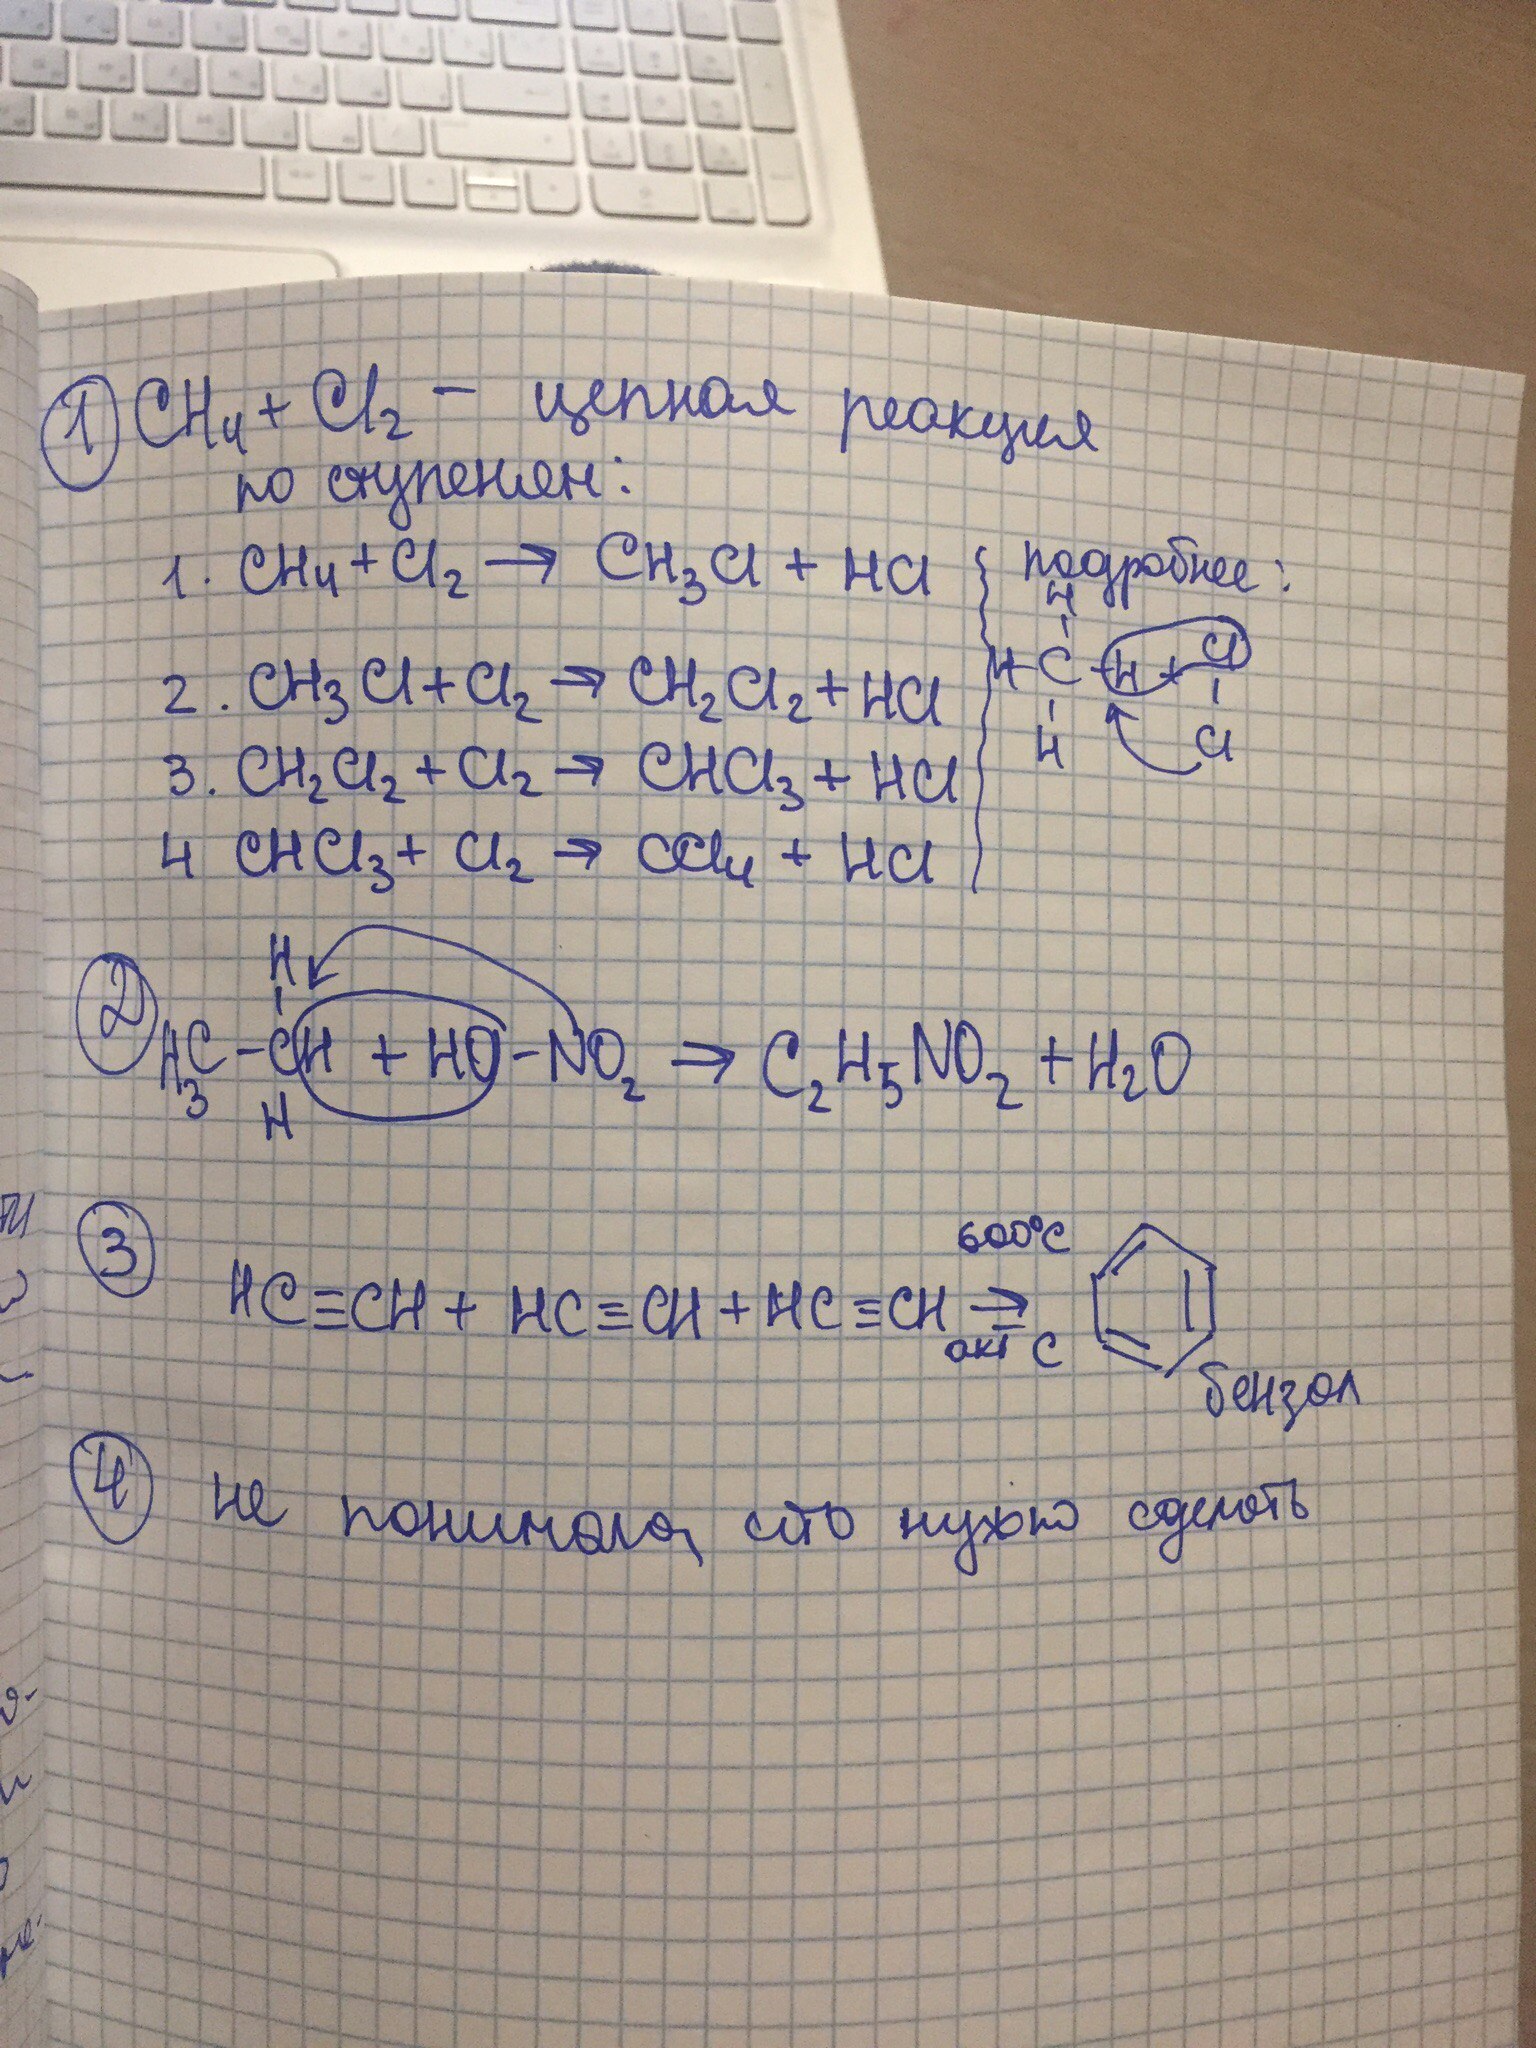 1 CH4 + Cl2 – цепная реакция
по ступеням:
1. CH4 + Cl2 → CH3Cl + HCl
2. CH3Cl + Cl2 → CH2Cl2 + HCl
3. CH2Cl2 + Cl2 → CHCl3 + HCl
4 CHCl3 + Cl2 → CCl4 + HCl
подробнее:
H
H – C – H + Cl
H Cl
H
2 H3C – CH + HO – NO2 → C2H5NO2 + H2O
H
3
600°C
HC≡CH + HC≡CH + HC≡CH →
акт C
бензол
4 не понимаю, что нужно сделать